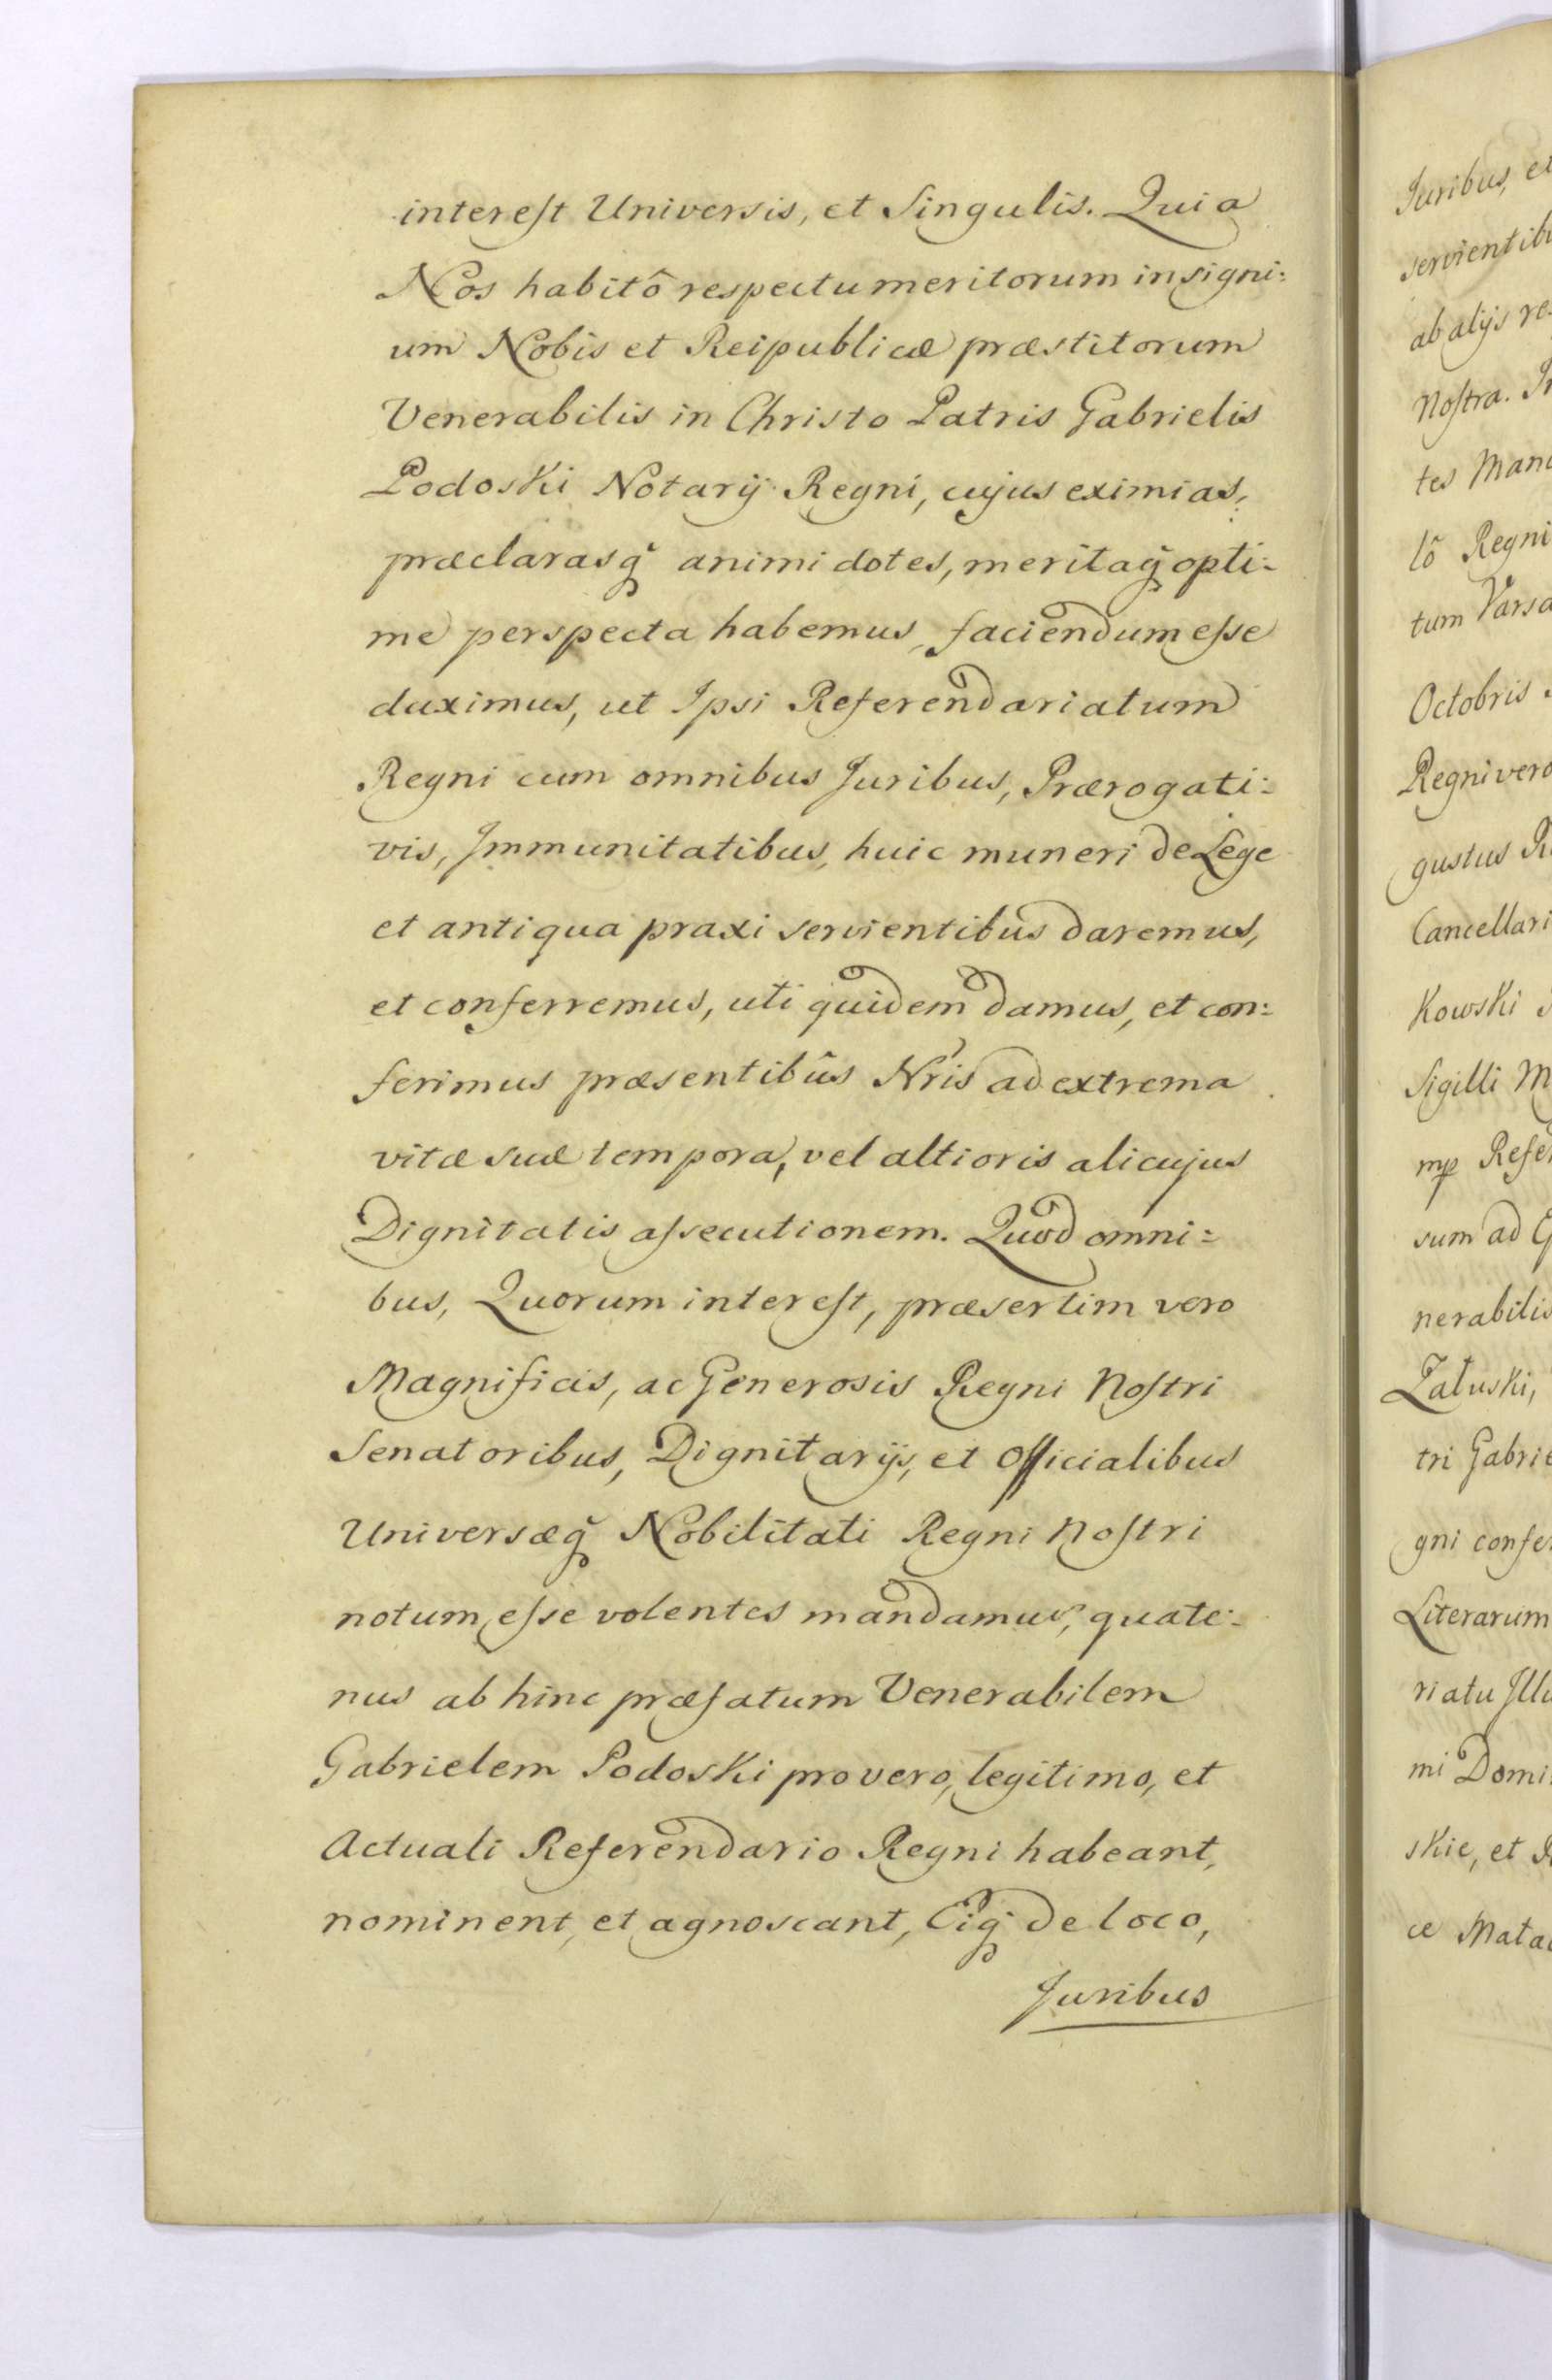 interest Universis, et Singulis. Quia
Nos habitô respectu meritorum insigni:
um Nobis et Reipublicæ præstitorum
Venerabilis in Christo Patris Gabrielis
Podoski Notarij Regni, cujus eximias,
præclarasq̃ animi dotes, meritaq̃ opti:
me perspecta habemus, faciendum esse
duximus, ut Ipsi Referendariatum
Regni cum omnibus Juribus, Prærogati:
vis, Immunitatibus, huic muneri de Lege
et antiqua praxi servientibus daremus,
et conferremus, uti quidem damus, et con:
ferimus præsentibûs Nr̃is ad extrema
vitæ suæ tempora, vel altioris alicujus
Dignitatis assecutionem. Quod omni:
bus, Quorum interest, præsertim vero
Magnificis, ac Generosis Regni Nostri
Senatoribus, Dignitarijs, et Officialibus
Universæq̃ Nobilitati Regni Nostri
notum esse volentes mandamus, quate:
nus ab hinc præfatum Venerabilem
Gabrielem Podoski pro vero, legitimo, et
Actuali Referendario Regni habeant,
nominent, et agnoscant, Eiq̃ de loco,
Juribus
Juribus, et
servienti
ab alijs re
Nostra. 
tes Man
lô Regni
tum Varsa
Octobris
Regni vero
gustus
Cancellari
Kowski
Sigilli M
mp Refer
sum ad G
nerabilis
Załuski,
tri Gabrie
gni confe
Literarum
riatu Illu
mi Domi
skie, et
ce Mata